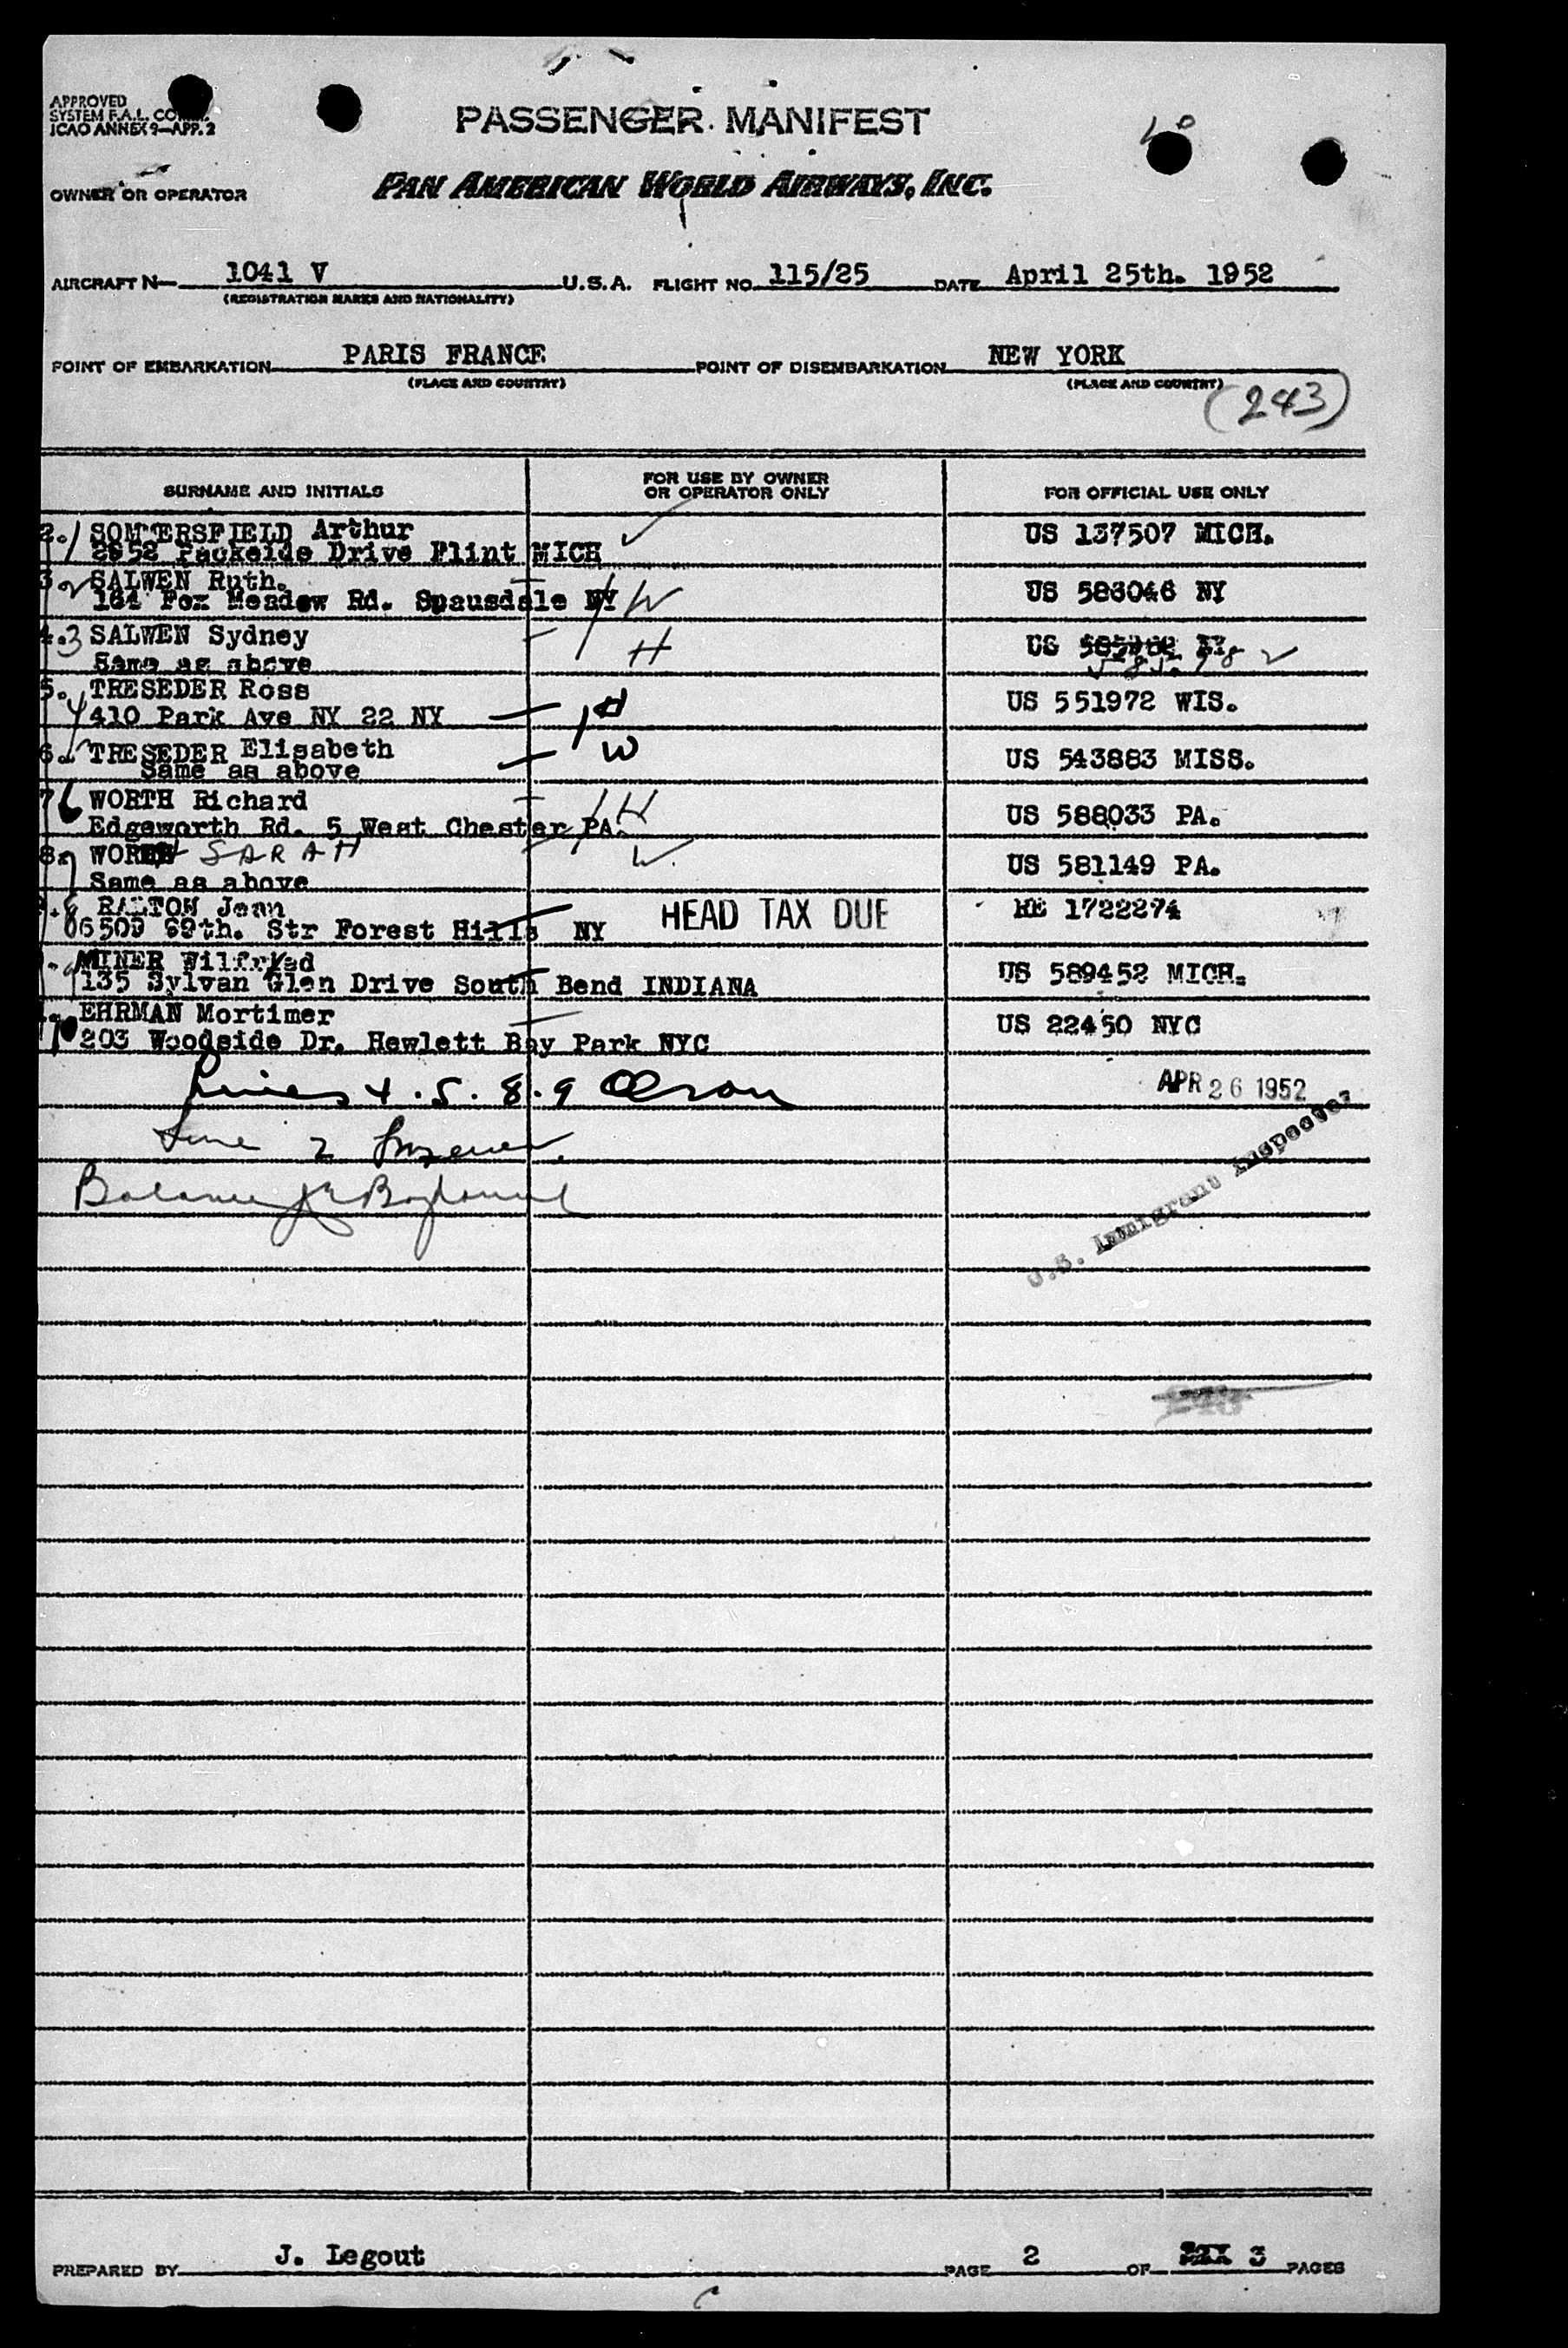 APPROVED
SYSTEM F.A.L.
ICAO ANNEX 9—APP. 2
PASSENGER MANIFEST
OWNER OR OPERATOR
PAN AMERICAN WORLD AIRWAYS, INC.
AIRCRAFT N— 1041 V U.S.A. FLIGHT NO. 115/25 DATE April 25th. 1952
(REGISTRATION MARKS AND NATIONALITY)
POINT OF EMBARKATION PARIS FRANCE POINT OF DISEMBARKATION NEW YORK
(PLACE AND COUNTRY) (PLACE AND COUNTRY)
(243)
SURNAME AND INITIALS FOR USE BY OWNER OR OPERATOR ONLY FOR OFFICIAL USE ONLY
2. 1 SOMMERSFIELD Arthur US 137507 MICH.
2852 Drive Flint MICH
3. 2 SALWEN Ruth. US 586046 NY
164 Fox Meadow Rd. Spausdale NY W
4. 3 SALWEN Sydney H US NY
Same as above
5. TRESEDER Ross H US 551972 WIS.
4 410 Park Ave NY 22 NY
6. TRESEDER Elisabeth W US 543883 MISS.
Same as above
7 6 WORTH Richard H US 588033 PA.
Edgeworth Rd. 5 West Chester PA.
8. 7 WORTH SARAH W. US 581149 PA.
Same as above
8 RALTON Jean HEAD TAX DUE RE 1722274
06509 69th. Str Forest Hills NY
9 MINER Wilfryed US 589452 MICH.
135 Sylvan Glen Drive South Bend INDIANA
10 EHRMAN Mortimer US 22450 NYC
203 Woodside Dr. Hewlett Bay Park NYC
Lines 4. 5. 8. 9 Olson
APR 26 1952
Line 2
Balance
U.S. Immigrant Inspector
PREPARED BY J. Legout PAGE 2 OF 3 PAGES